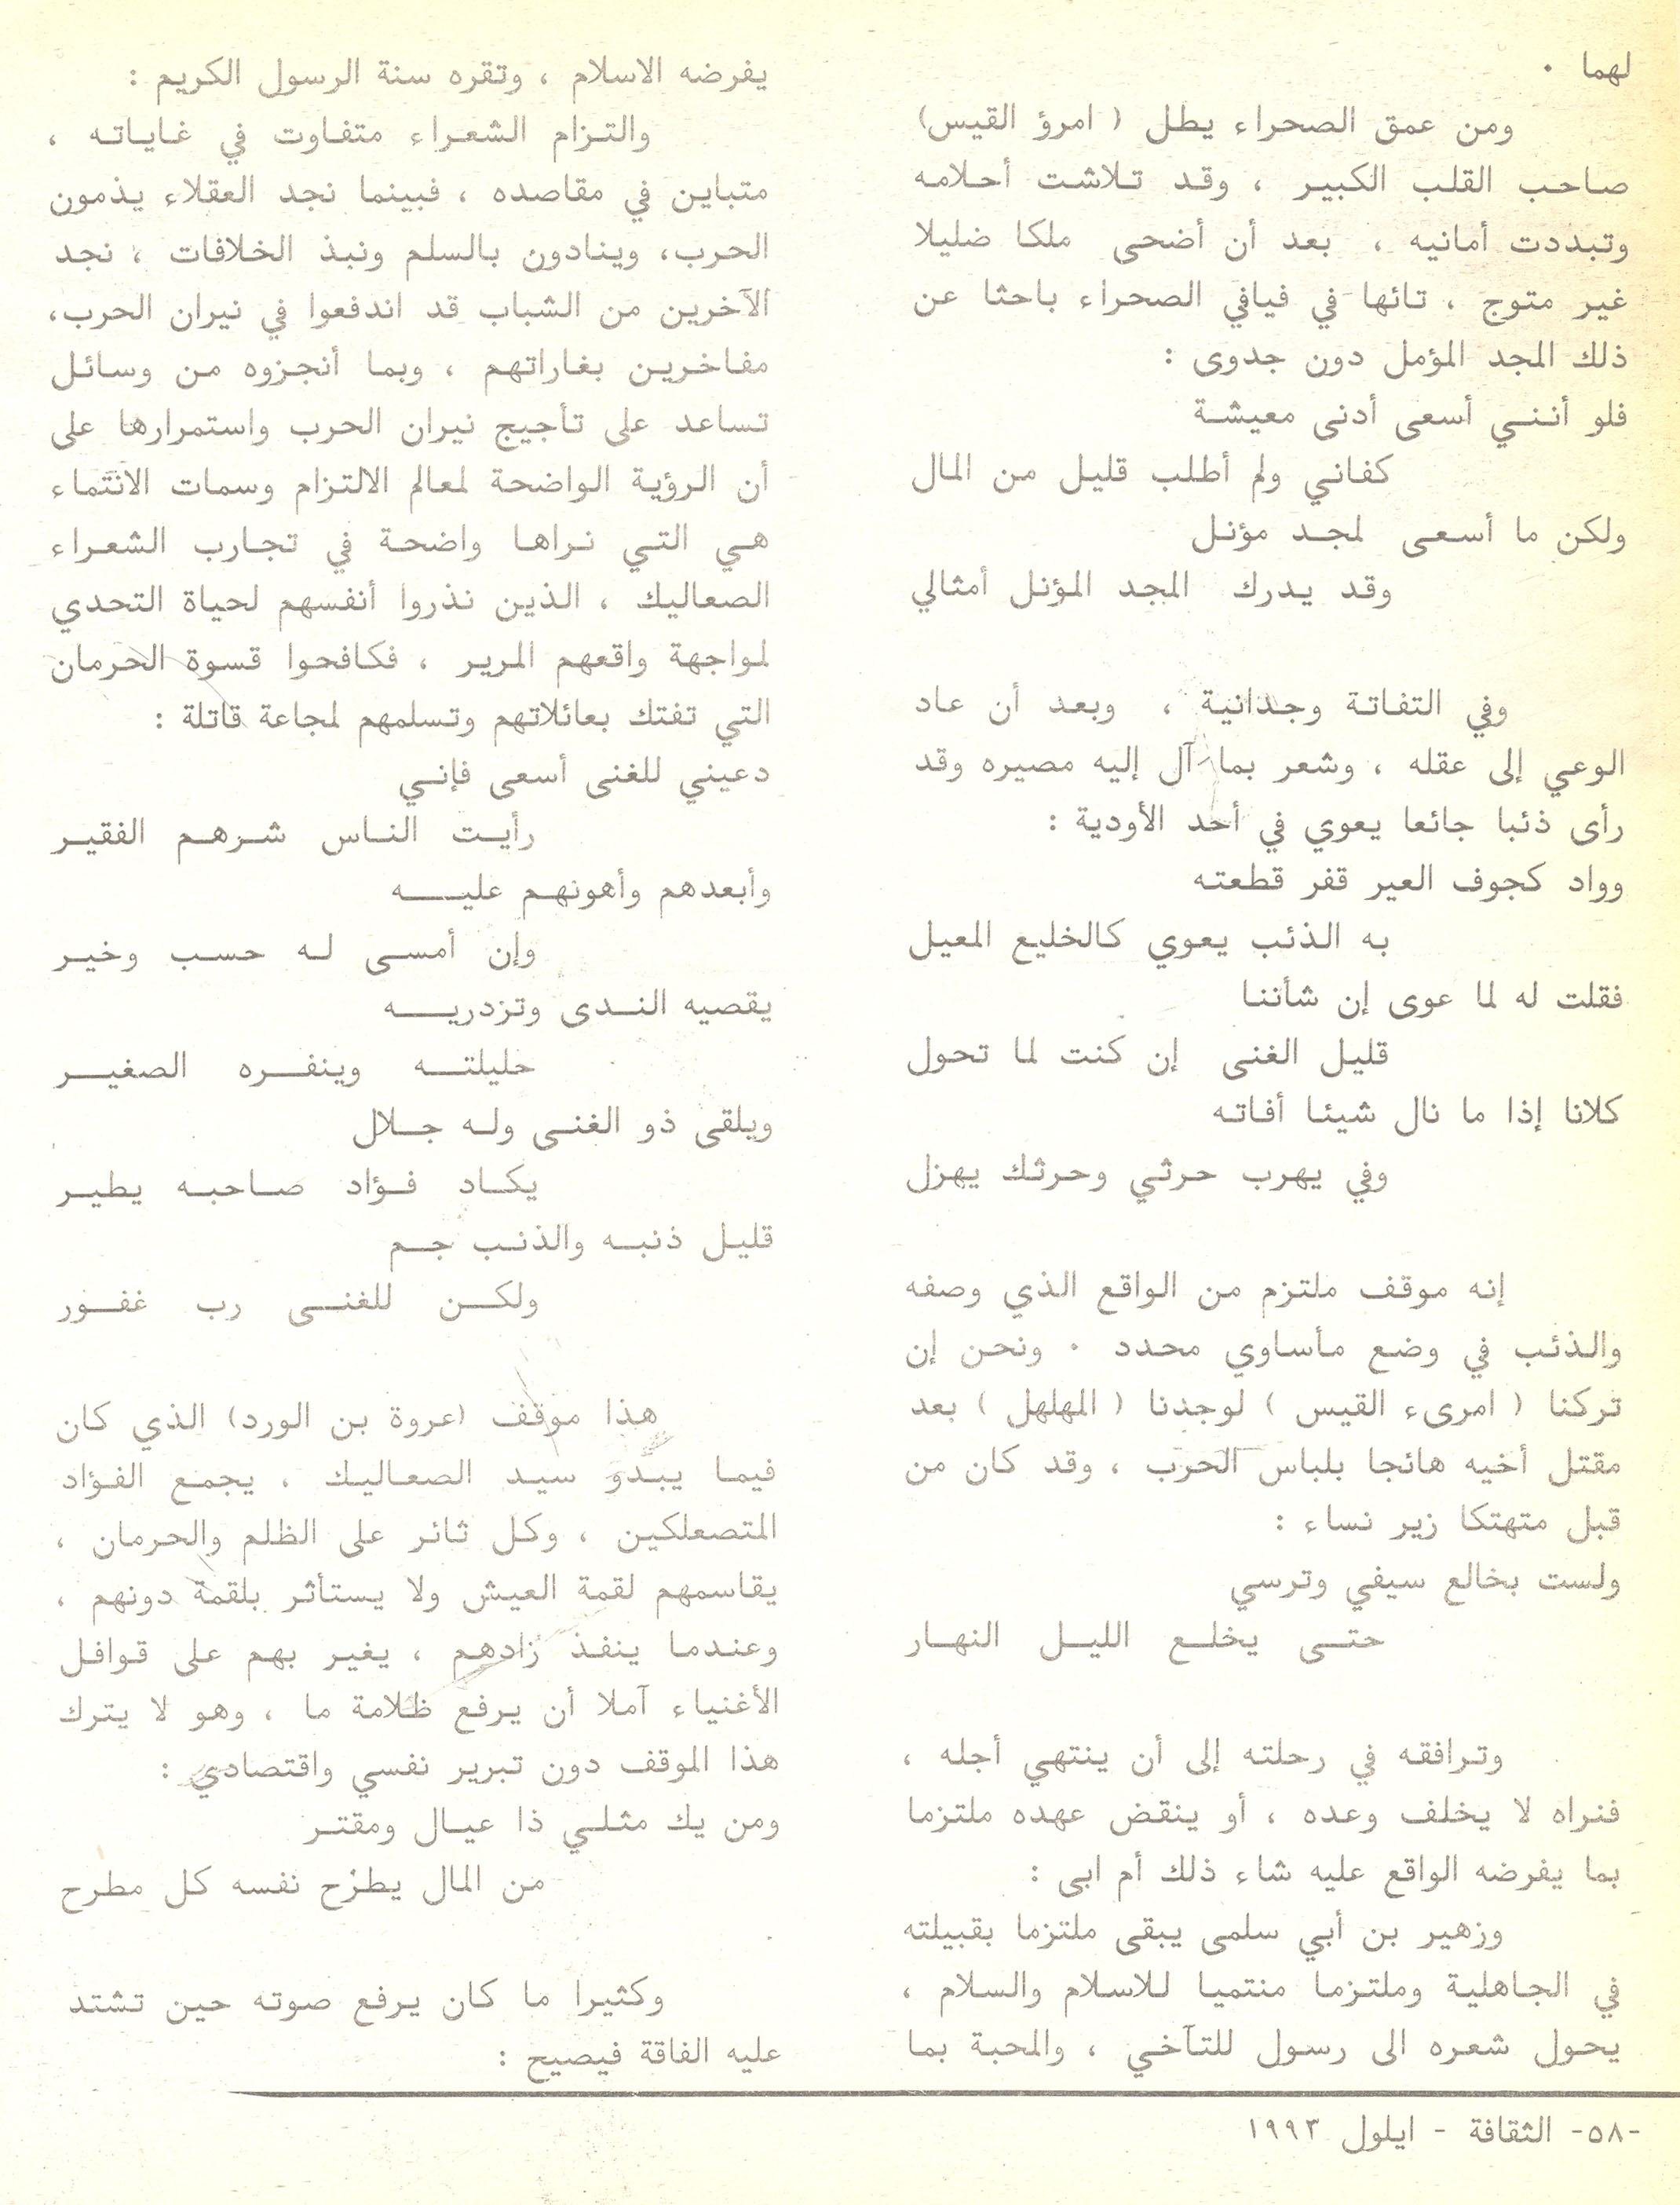 لهما ٠
ومن عمق الصحراء يطل ( امرؤ القيس)
صاحب القلب الكبير ، وقد تلاشت أحلامه
وتبددت أمانيه ، بعد أن أضحى ملكا ضليلا
غير متوج ، تائها في فيافي الصحراء باحثا عن
ذلك المجد المؤمل دون جدوى :
فلو أنني أسعى أدنى معيشة
كفاني ولم أطلب قليل من المال
ولكن ما أسعى لمجد مؤنل
وقد يدرك المجد المؤنل أمثالي
وفي التفاتة وجدانية ، وبعد أن عاد
الوعي إلى عقله ، وشعر بما آل إليه مصيره وقد
رأى ذئبا جائعا يعوي في أحد الأودية :
وواد كجوف العير قفر قطعته
به الذئب يعوي كالخليع المعيل
فقلت له لما عوى إن شأننا
قليل الغنى إن كنت لما تحول
كلانا إذا ما نال شيئا أفاته
وفي يهرب حرثي وحرثك يهزل
إنه موقف ملتزم من الواقع الذي وصفه
والذئب في وضع مأساوي محدد ٠ ونحن إن
تركنا ( امرىء القيس ) لوجدنا ( المهلهل ) بعد
مقتل أخيه هائجا بلباس الحرب ، وقد كان من
قبل متهتكا زير نساء :
ولست بخالع سيفي وترسي
حتى يخلع الليل النهار
وترافقه في رحلته إلى أن ينتهي أجله ،
فنراه لا يخلف وعده ، أو ينقض عهده ملتزما
بما يفرضه الواقع عليه شاء ذلك أم ابى :
وزهير بن أبي سلمى يبقى ملتزما بقبيلته
في الجاهلية وملتزما منتميا للاسلام والسلام ،
يحول شعره الى رسول للتآخي ، والمحبة بما
يفرضه الاسلام ، وتقره سنة الرسول الكريم :
والتزام الشعراء متفاوت في غاياته ،
متباين في مقاصده ، فبينما نجد العقلاء يذمون
الحرب، وينادون بالسلم ونبذ الخلافات ، نجد
الآخرين من الشباب قد اندفعوا في نيران الحرب،
مفاخرين بغاراتهم ، وبما أنجزوه من وسائل
تساعد على تأجيج نيران الحرب واستمرارها على
أن الرؤية الواضحة لمعالم الالتزام وسمات الانتماء
هي التي نراها واضحة في تجارب الشعراء
الصعاليك ، الذين نذروا أنفسهم لحياة التحدي
لمواجهة واقعهم المرير ، فكافحوا قسوة الحرمان
التي تفتك بعائلاتهم وتسلمهم لمجاعة قاتلة :
دعيني للغنى أسعى فإني
رأيت الناس شرهم الفقير
وأبعدهم وأهونهم عليه
وإن أمسى له حسب وخير
يقصيه الندى وتزدريه
حليلته وينفره الصغير
ويلقى ذو الغنى وله جلال
يكاد فؤاد صاحبه يطير
قليل ذنبه والذنب جم
ولكن للغنى رب غفور
هذا موقف (عروة بن الورد) الذي كان
فيما يبدو سيد الصعاليك ، يجمع الفؤاد
المتصعلكين ، وكل ثائر على الظلم والحرمان ،
يقاسمهم لقمة العيش ولا يستأثر بلقمة دونهم ،
وعندما ينفذ زادهم ، يغير بهم على قوافل
الأغنياء آملا أن يرفع ظلامة ما ، وهو لا يترك
هذا الموقف دون تبرير نفسي واقتصادي :
ومن يك مثلي ذا عيال ومقتر
من المال يطرح نفسه كل مطرح
وكثيرا ما كان يرفع صوته حين تشتد
عليه الفاقة فيصيح :
-٥٨- الثقافة - ايلول ١٩٩٣